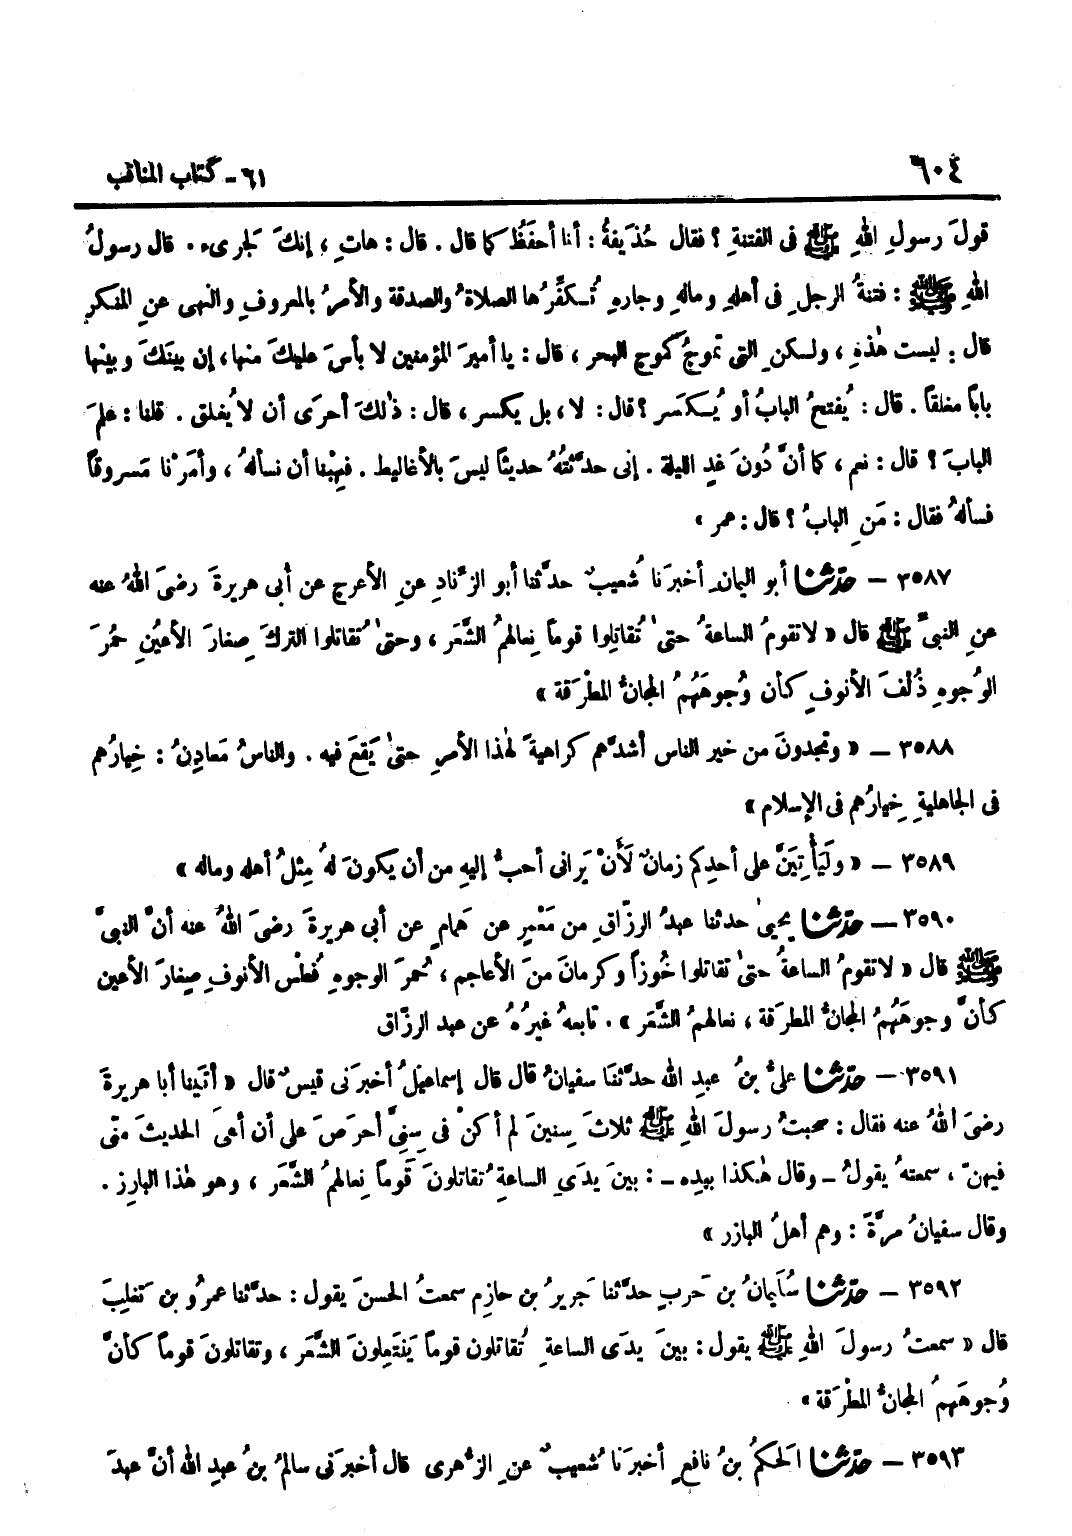 ٦٠٤
٦١ - كتاب المناقب
قولَ رسولِ اللهِ ﷺ فى الفتنةِ ؟ فقال حُذَيفةُ : أنا أحفَظُ كما قال . قال : هاتِ ، إنكَ لَجرىء . قال رسولُ
اللهِ ﷺ : فتنةُ الرجلِ فى أهلهِ ومالهِ وجارهِ تُكفِّرُها الصلاةُ والصدقة والأمرُ بالمعروفِ والنهى عنِ المنكر
قال : ليست هٰذهِ ، ولكنِ التى تموجُ كموجِ البحر ، قال : يا أميرَ المؤمنين لا بأسَ عليكَ منها، إن بينَكَ وبينها
باباً مغلقاً . قال : يُفتحُ البابُ أو يُكسَر ؟ قال : لا ، بل يكسر ، قال : ذٰلكَ أحرَى أن لا يُغلق . قلنا : علمَ
البابَ ؟ قال : نعم ، كما أنَّ دُونَ غدٍ الليلة . إنى حدَّثتُهُ حديثاً ليسَ بالأغاليط . فهِبْنا أن نسألهُ ، وأمَرْنا مَسروقاً
فسألهُ فقال : مَنِ البابُ ؟ قال : عمر »
٣٥٨٧ – حدّثنا أبو اليمانِ أخبرَنا شُعيبٌ حدَّثنا أبو الزِّنادِ عنِ الأعرجِ عن أبى هريرةَ رضىَ اللهُ عنه
عنِ النبىِّ ﷺ قال « لا تقومُ الساعةُ حتىٰ تُقاتِلوا قوماً نِعالهمُ الشَّعَر ، وحتىٰ تُقاتلوا التركَ صِغارَ الأعيُنِ حُمرَ
الوُجوهِ ذُلْفَ الأنوفِ كأن وُجوهَهُمُ المجانُّ المطْرَقة »
٣٥٨٨ – « وتجدونَ من خيرِ الناسِ أشدَّهم كراهيةً لهٰذا الأمرِ حتىٰ يَقعَ فيه . والناسُ مَعادِنُ : خِيارُهم
فى الجاهليةِ خِيارُهم فى الإسلام »
٣٥٨٩ – « ولَيَأْتِيَنَّ على أحدِكم زمانٌ لَأَنْ يَرانى أحبُّ إليهِ من أن يكونَ لهُ مِثلُ أهله وماله »
٣٥٩٠ – حدّثنا يحيىٰ حدثنا عبدُ الرزّاقِ من مَعْمرٍ عن هَمامٍ عن أبى هريرةَ رضىَ اللهُ عنه أنَّ النبىَّ
ﷺ قال « لا تقومُ الساعةُ حتىٰ تقاتلوا خُوزاً وكرمانَ منَ الأعاجم ، حُمرَ الوجوهِ فُطْس الأنوفِ صِغارَ الأعين
كأنَّ وجوهَهُمُ المجانُّ المطرقة ، نعالهمُ الشَّعَر » . تابعهُ غيرُهُ عن عبد الرزّاق
٣٥٩١ – حدّثنا علىُّ بنُ عبدِ الله حدَّثنَا سفيانُ قال قال إسماعيلُ أخبرَنى قيسٌ قال « أتَينا أبا هريرةَ
رضىَ اللهُ عنه فقال : صحبتُ رسولَ اللهِ ﷺ ثلاثَ سِنينَ لم أكنْ فى سِنِىَّ أحرَصَ على أن أعىَ الحديثَ منّى
فيهنّ ، سمعتهُ يقولُ – وقال هٰكذا بيدِه – : بينَ يدَىِ الساعةِ تُقاتلونَ قَوماً نِعالهمُ الشَّعَر ، وهو هٰذا البارِز .
وقال سفيانُ مرَّةً : وهم أهلُ البازر »
٣٥٩٢ – حدّثنا سُلَيمانُ بن حَربٍ حدَّثنا جَريرُ بن حازِم سمعتُ الحسنَ يقول : حدَّثنا عمرُو بن تَغلِبَ
قال « سمعتُ رسولَ اللهِ ﷺ يقول : بينَ يدَى الساعةِ تُقاتلون قوماً يَنتَعِلونَ الشَّعَر ، وتقاتلونَ قوماً كأنَّ
وُجوهَهمُ المجانُّ المطْرَقة »
٣٥٩٣ – حدّثنا الحَكمُ بنُ نافعٍ أخبرَنا شُعيبٌ عنِ الزُّهرى قال أخبرَنى سالمُ بنُ عبدِ الله أنَّ عبدَ